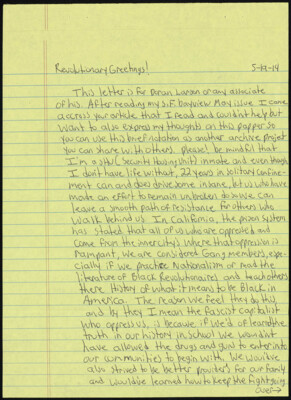 Revolutionary Greetings! 5-12-14
This letter is for Biran Laran or any associate
of his. After reading my S.F. bayview May issue I came
across your article that I read and couldn't help but
want to also express my thoughts on this papper so
you can use this brief notation as another archive project
you can share with others. Please! be mindful that
I'm a SHU (Security Housing Unit) inmate and even though
I don't have life without, 22 years in solitary confine-
ment can and does drive some insane, but us who have
made an effort to remain unbroken do so we can
leave a smooth path of resistance for others who
walk behind us. In California, the prison system
has stated that all of us who are oppressed and
come from the innercitys where that oppression is
rampant, we are considered Gang members, espe-
cially if we practice Nationalism or read the
literature of Black Revolutionaries and teach others
there History of what it means to be Black in
America. The reason we feel they do this,
and by they I mean the fascist capitalist
who oppress us, is because if we'd of learned the
truth in our history in school we wouldn't
have allowed the drugs and guns to enter into
our communities to begin with. We would've
also strived to be better providers for our family
and would've learned how to keep the fight going
over→